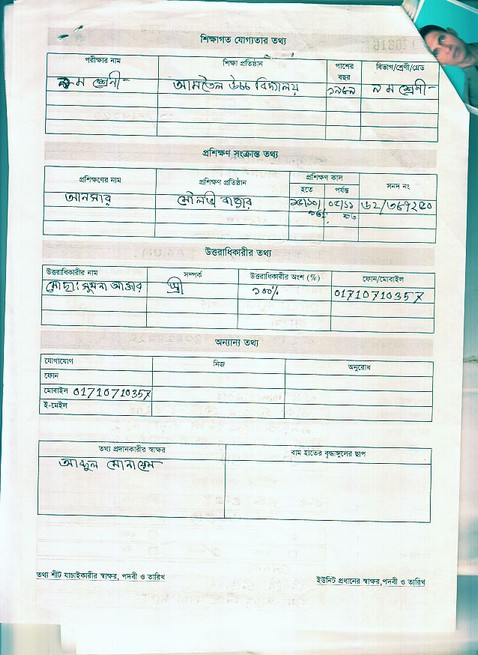 শিক্ষাগত যোগ্যতার তথ্য
পরীক্ষার নাম শিক্ষা প্রতিষ্ঠান পাশের বছর বিভাগ/শ্রেণী/গ্রেড
৯ম শ্রেণী- আমতৈল উচ্চ বিদ্যালয় ১৯৮৯ ৯ম শ্রেণী-
প্রশিক্ষণ সংক্রান্ত তথ্য
প্রশিক্ষণের নাম প্রশিক্ষণ প্রতিষ্ঠান প্রশিক্ষণ কাল সনদ নং
হতে পর্যন্ত
আনসার মৌলভী বাজার
উত্তরাধিকারীর তথ্য
উত্তরাধিকারীর নাম সম্পর্ক উত্তরাধিকারীর অংশ (%) ফোন/মোবাইল
মোছাঃ সুমনা আক্তার স্ত্রী ১০০% 01710710357
অন্যান্য তথ্য
যোগাযোগ নিজ অনুরোধ
ফোন
মোবাইল 01710710357
ই-মেইল
তথ্য প্রদানকারীর স্বাক্ষর বাম হাতের বৃদ্ধাঙ্গুলের ছাপ
আব্দুল মোনায়েম
তথ্য শীট যাচাইকারীর স্বাক্ষর, পদবী ও তারিখ ইউনিট প্রধানের স্বাক্ষর,পদবী ও তারিখ